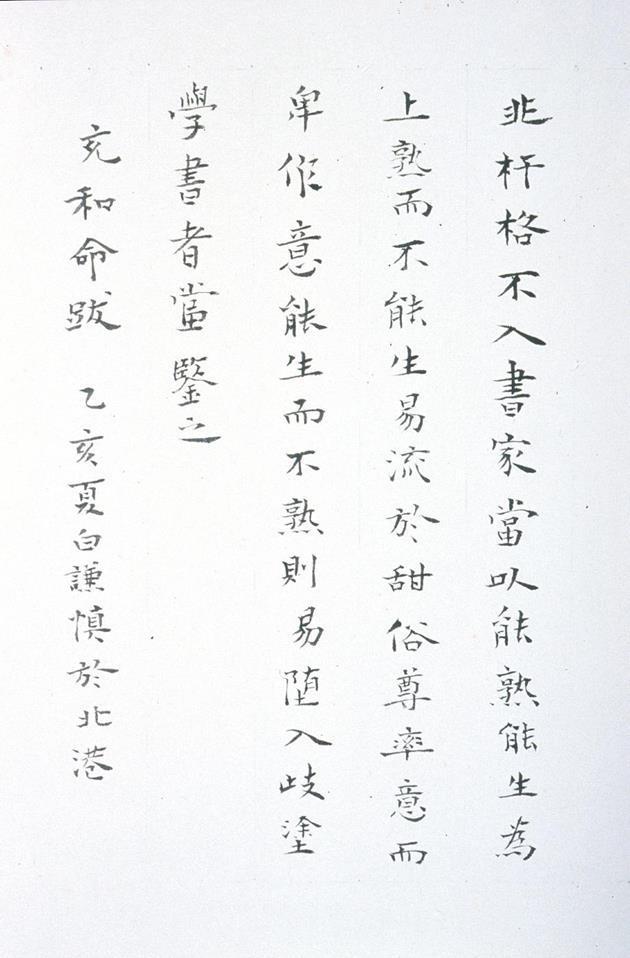 非杆格不入書家當以能熟能生為
上熟而不能生易流於甜俗尊率意而
卑作意能生而不熟則易堕入歧塗
學書者當鑒之
充和命跋 乙亥夏白謙慎於北港